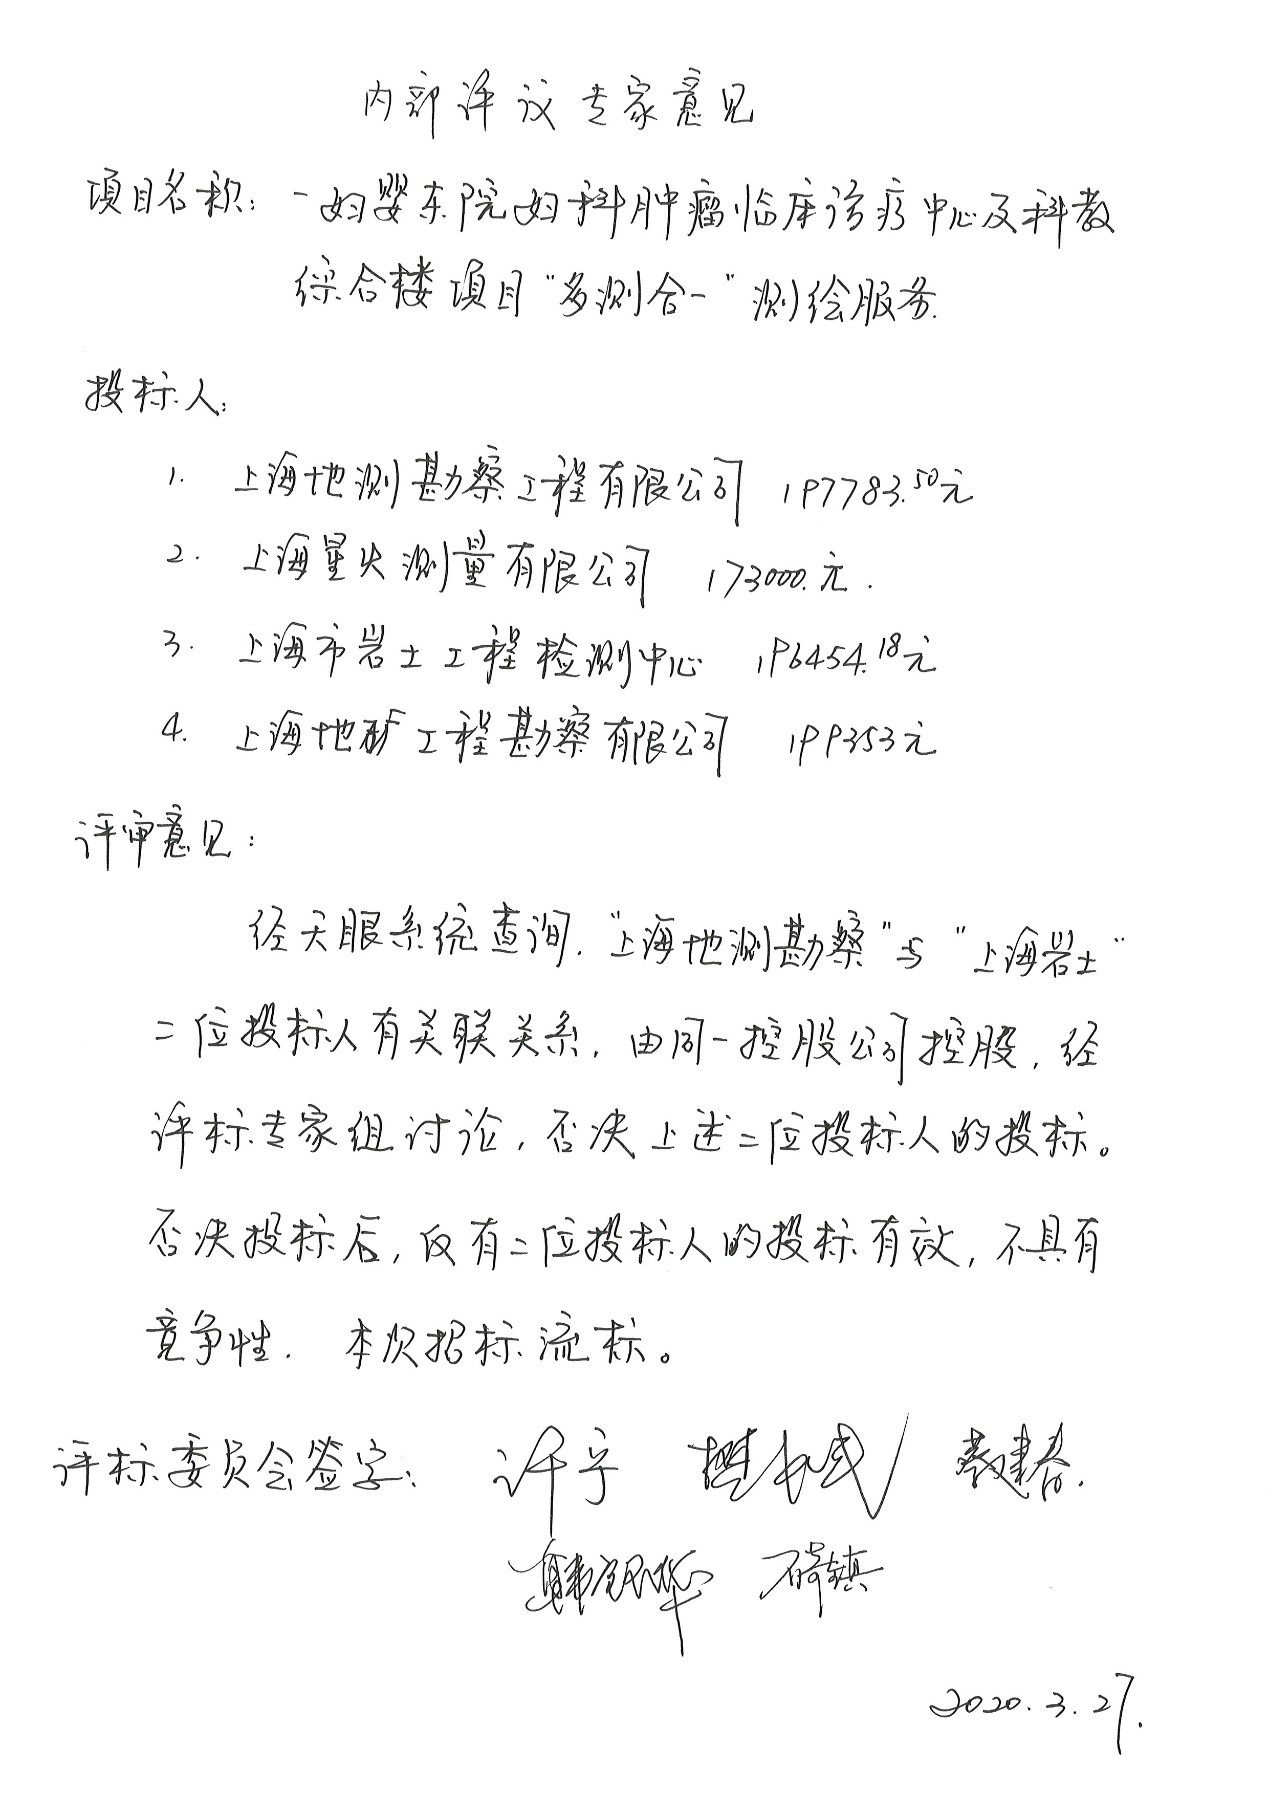 内部评议专家意见
项目名称：一妇婴东院妇科肿瘤临床诊疗中心及科教
综合楼项目“多测合一”测绘服务.
投标人：
1. 上海地测勘察工程有限公司 197783.50元
2. 上海星火测量有限公司 173000.元.
3. 上海市岩土工程检测中心 196454.18元
4. 上海地矿工程勘察有限公司 199353元
评审意见：
经天眼系统查询.“上海地测勘察”与“上海岩土”
二位投标人有关联关系，由同一控股公司控股，经
评标专家组讨论，否决上述二位投标人的投标。
否决投标后，仅有二位投标人的投标有效，不具有
竞争性. 本次招标流标。
评标委员会签字： 许宁
2020.3.27.